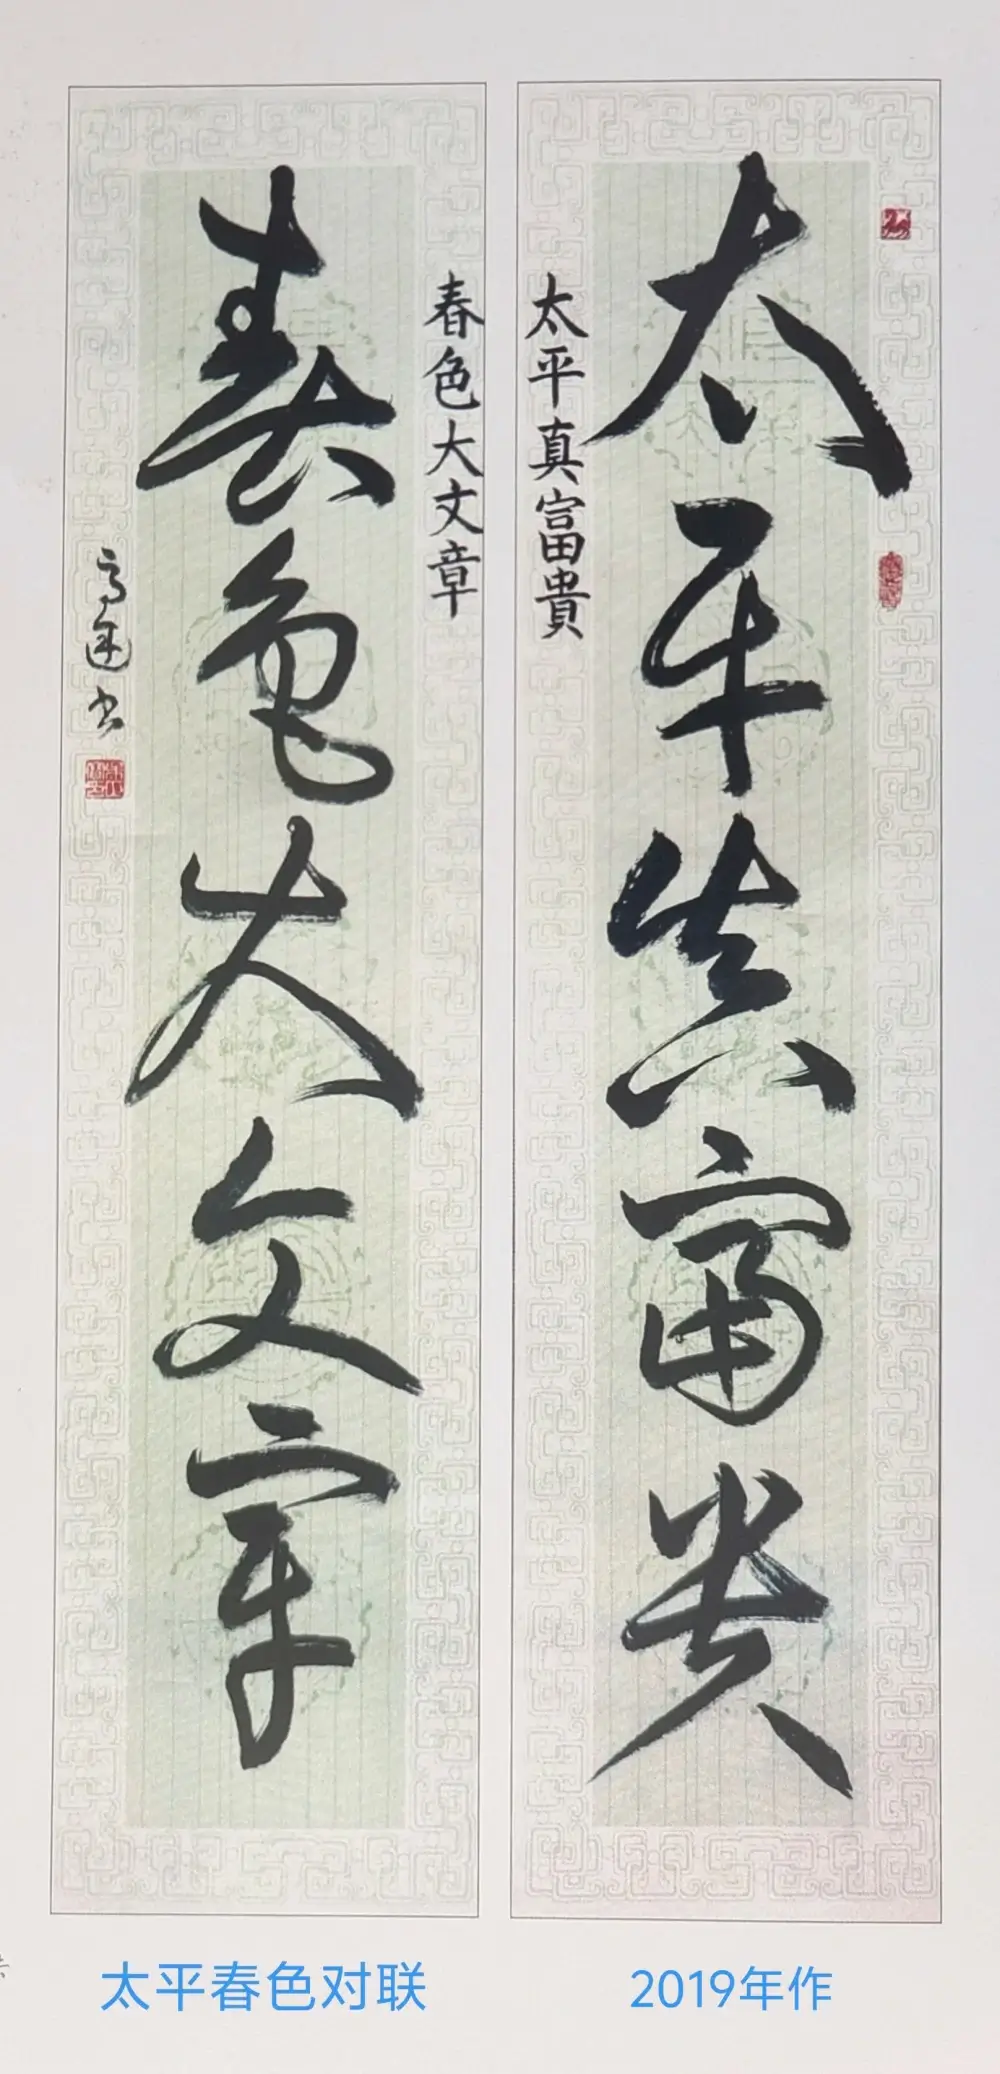 太平真富貴
太平真富貴
春色大文章
春色大文章
高运书
太平春色对联
2019年作